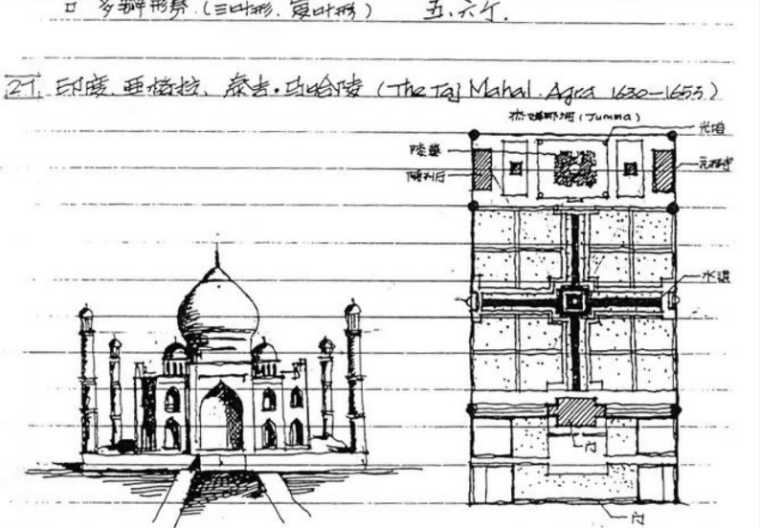 □ 多瓣形券.(三叶形.复叶形) 五、六个.
27. 印度.亚格拉、泰吉·马哈陵 (The Taj Mahal. Agra 1630—1653)
(Jumna)
光塔
陵墓
水渠
门
门